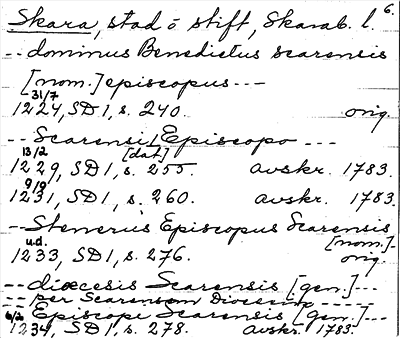 6.
Skara, stad o stift, Skarab. l.
-- dominus Benedictus scarensis
[nom.] episcopus ---
31/7
1224, SD 1, s. 240. orig.
-- Scarensi Episcopo ---
13/2 [dat.]
1229, SD 1, s. 255. avskr. 1783.
9/9
1231, SD 1, s. 260. avskr. 1783.
-- Stenerius Episcopus Scarensis
u.d. [nom.]-
1233, SD 1, s. 276. orig.
-- diœcesis Scarensis [gen.] ---
-- per Scarensem Diocesim -----
-- Episcopi Scarensis [gen.] ---
6/2
1234, SD 1, s. 278. avskr. 1783.